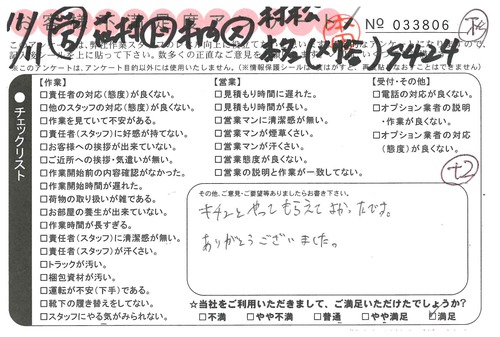 No 033806
記入後シールを上に貼って下さい。数多くの正直なご意見を
※このアンケートは、アンケート目的以外には使用いたしません。(※情報保護シールは
チェックリスト
【作業】
□責任者の対応(態度)が良くない。
□他のスタッフの対応(態度)が良くない。
□作業を見ていて不安がある。
□責任者(スタッフ)に好感が持てない。
□お客様への挨拶が出来ていない。
□ご近所への挨拶・気遣いが無い。
□作業開始前の内容確認がなかった。
□作業開始時間が遅れた。
□荷物の取り扱いが雑である。
□お部屋の養生が出来ていない。
□作業時間が長すぎる。
□責任者(スタッフ)に清潔感が無い。
□責任者(スタッフ)が汗くさい。
□トラックが汚い。
□梱包資材が汚い。
□運転が不安(下手)である。
□靴下の履き替えをしてない。
□スタッフにやる気がみられない。
【営業】
□見積もり時間に遅れた。
□見積もり時間が長い。
□営業マンに清潔感が無い。
□営業マンが煙草くさい。
□営業マンが汗くさい。
□営業態度が良くない。
□営業の説明と作業が一致してない。
【受付・その他】
□電話の対応が良くない。
□オプション業者の説明
・作業が良くない。
□オプション業者の対応
(態度)が良くない。
+2
その他、ご意見・ご要望等ありましたらお書き下さい。
キチンとやってもらえてよかったです。
ありがとうございました。
☆当社をご利用いただきまして、ご満足いただけたでしょうか?
□不満 □やや不満 □普通 □やや満足 ☑満足